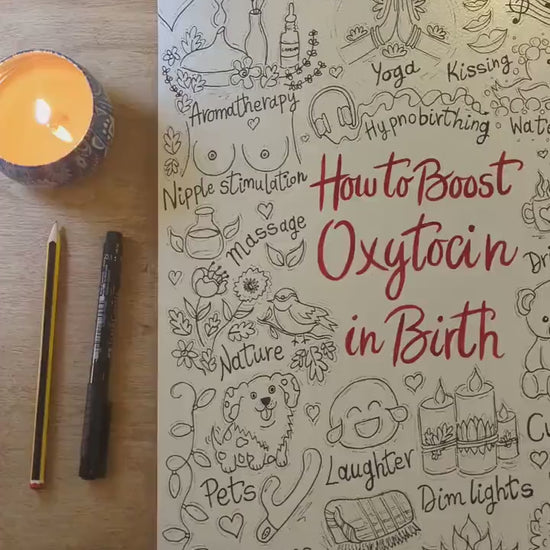 Yoga
Kissing
Aromatherapy
Hypnobirthing
Nipple stimulation
How to Boost
Oxytocin
in Birth
Massage
Nature
Pets
Laughter
Dim lights